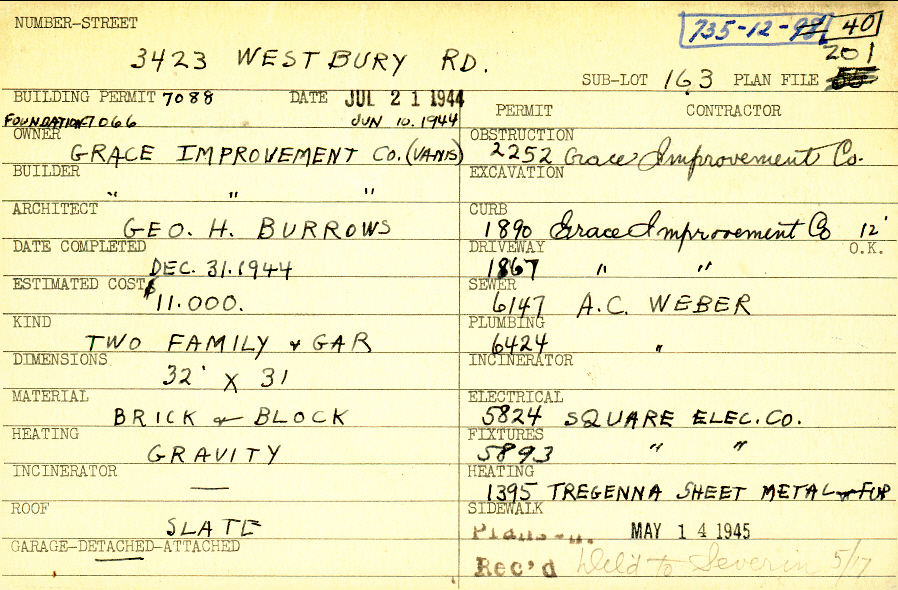 NUMBER-STREET
735-12-98 40
3423 WESTBURY RD.
201
SUB-LOT 163 PLAN FILE
BUILDING PERMIT 7088 DATE JUL 21 1944
FOUNDATION 7066 JUN 10.1944
PERMIT CONTRACTOR
OWNER
GRACE IMPROVEMENT CO. (VANIS)
BUILDER
" " "
ARCHITECT
GEO. H. BURROWS
DATE COMPLETED
DEC. 31.1944
ESTIMATED COST
$11.000.
KIND
TWO FAMILY & GAR
DIMENSIONS
32' X 31
MATERIAL
BRICK & BLOCK
HEATING
GRAVITY
INCINERATOR
—
ROOF
SLATE
GARAGE-DETACHED-ATTACHED
OBSTRUCTION
2252 Grace Improvement Co.
EXCAVATION
CURB
1890 Grace Improvement Co 12'
DRIVEWAY O.K.
1867 " "
SEWER
6147 A.C. WEBER
PLUMBING
6424 "
INCINERATOR
ELECTRICAL
5824 SQUARE ELEC. CO.
FIXTURES
5893 " "
HEATING
1395 TREGENNA SHEET METAL & FUR
SIDEWALK
Plans MAY 14 1945
Rec'd Del'd to Severin 5/17